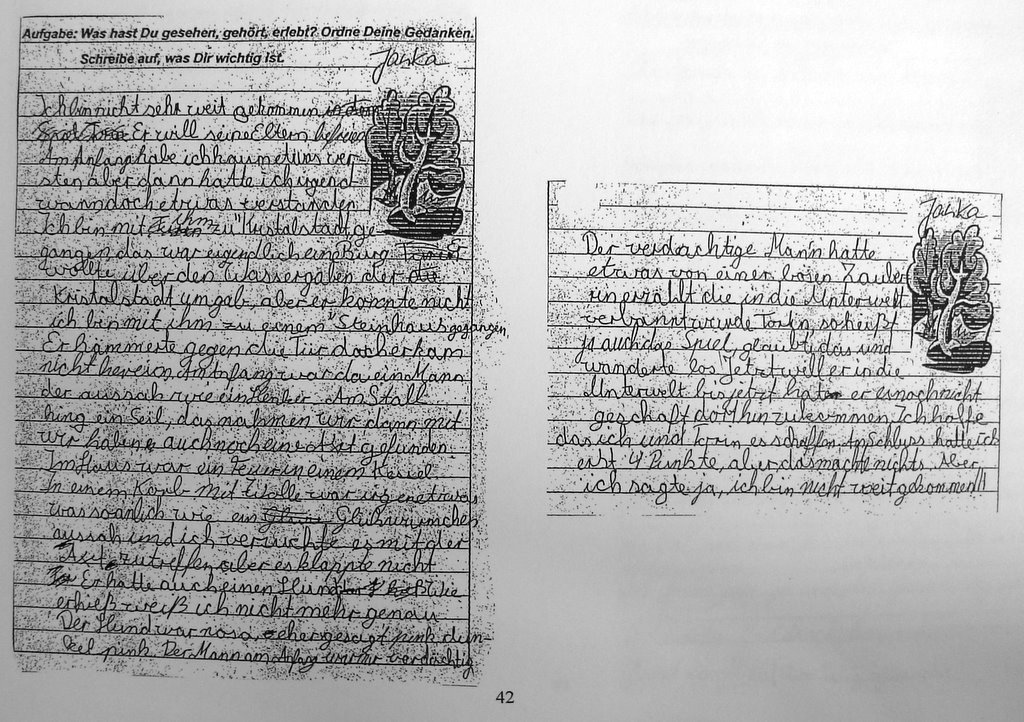 Aufgabe: Was hast Du gesehen, gehört, erlebt? Ordne Deine Gedanken.
Schreibe auf, was Dir wichtig ist.
Janka
Ich bin nicht sehr weit gekommen in dem
Torin Er will seine Eltern befreien
Am Anfang habe ich kaum etwas ver-
sten aber dann hatte ich irgend
wann doch etwas verstanden
Ich bin mit ihm zu "Kristalstadt ge
gangen das war eigendlich eine Burg Er
wollte über den Wassergraben der die
Kristalstadt umgab aber er konnte nicht
ich bin mit ihm zu einem "Steinhaus gegangen,
Er hammerte gegen die Tür doch er kam
nicht herein. Am Anfang war da ein Mann
der aussah wie ein Henker Am Stall
hing ein Seil, das nahmen wir dann mit
wir haben auch noch eine Axt gefunden.
Im Haus war ein Feuer in einem Kessel
In einem Korb mit Wolle war irgend etwas
was so änlich wie ein Glühwürmchen
aussah und ich versuchte es mit der
Axt zu treffen aber es klappte nicht
Er hatte auch einen Hund Wie
er hieß weiß ich nicht mehr genau
Der Hund war rosa, eher gesagt pink dun-
kel pink. Der Mann am Anfang war mir verdächtig
Janka
Der verdächtige Mann hatte
etwas von einer bösen Zauber
rin erzählt die in die Unterwelt
verbannt wurde Torin, so heißt
ja auch das Spiel, glaubt, das und
wanderte los Jetzt will er in die
Unterwelt bis jetzt hat er es noch nicht
geschaft dort hin zu kommen Ich hoffe
das ich und Torin es schaffen. Am Schluss hatte ich
erst 4 Punkte, aber das macht nichts. Aber
ich sagte ja, ich bin nicht weit gekommen!!
42